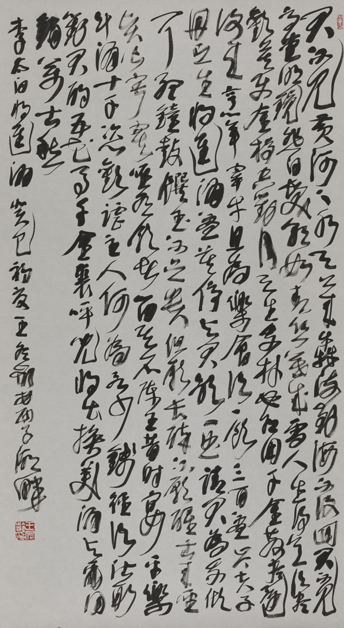 君不见黄河之水天上来奔流到海不复回君不见
高堂明镜悲白发朝如青丝暮成雪人生得意须尽
欢莫使金樽空对月天生我材必有用千金散尽还
复来烹羊宰牛且为乐会须一饮三百杯岑夫子
丹丘生将进酒杯莫停与君歌一曲请君为我倾
耳听钟鼓馔玉不足贵但愿长醉不愿醒古来圣
贤皆寂寞唯有饮者留其名陈王昔时宴平乐
斗酒十千恣欢谑主人何为言少钱径须沽取
对君酌五花马千金裘呼儿将出换美酒与尔同
销万古愁
李太白将进酒 癸巳初夏 王